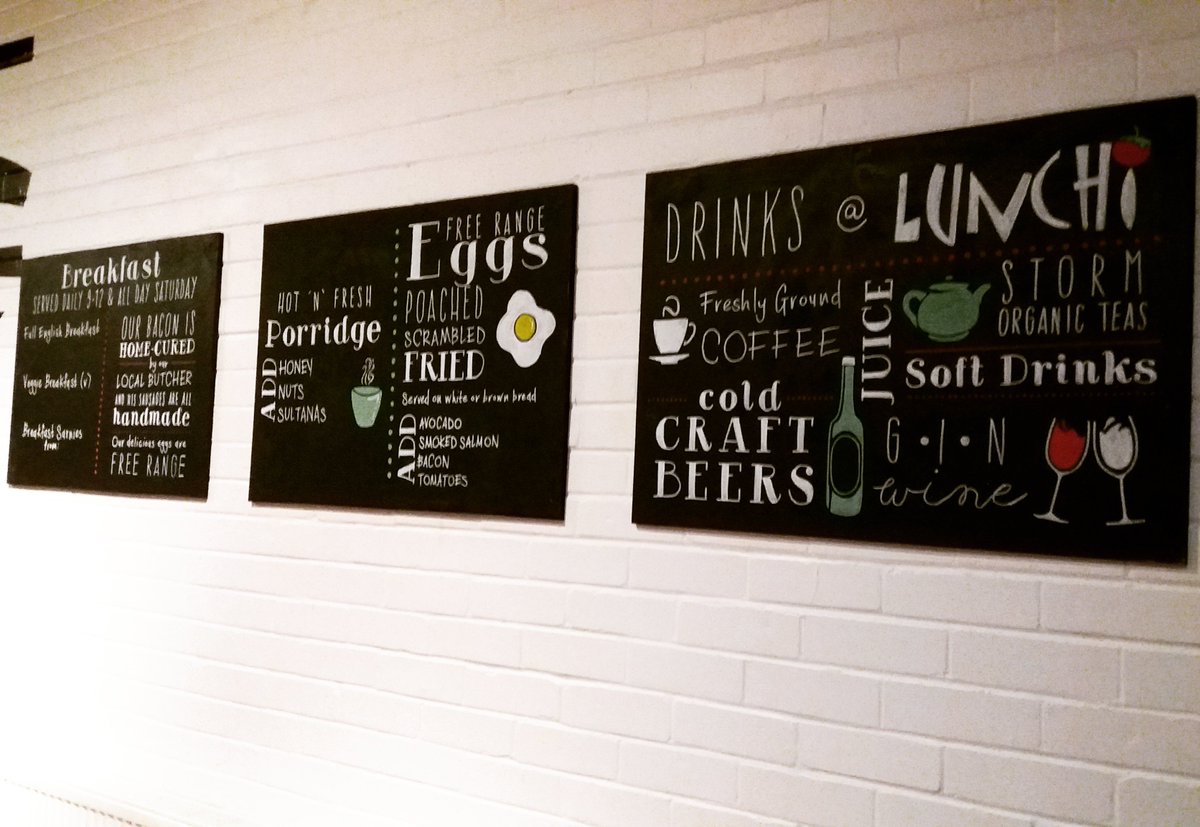 Breakfast
SERVED DAILY 9-12 & ALL DAY SATURDAY
Full English Breakfast
Veggie Breakfast (v)
Breakfast Sarnies
from:
OUR BACON IS
HOME-CURED
by our
LOCAL BUTCHER
AND HIS SAUSAGES ARE ALL
handmade
Our delicious eggs are
FREE RANGE
HOT 'N' FRESH
Porridge
ADD
HONEY
NUTS
SULTANAS
FREE RANGE
Eggs
POACHED
SCRAMBLED
FRIED
Served on white or brown bread
ADD
AVOCADO
SMOKED SALMON
BACON
TOMATOES
DRINKS @ LUNCHi
Freshly Ground
COFFEE
JUICE
STORM
ORGANIC TEAS
Soft Drinks
cold
CRAFT
BEERS
G•I•N
wine